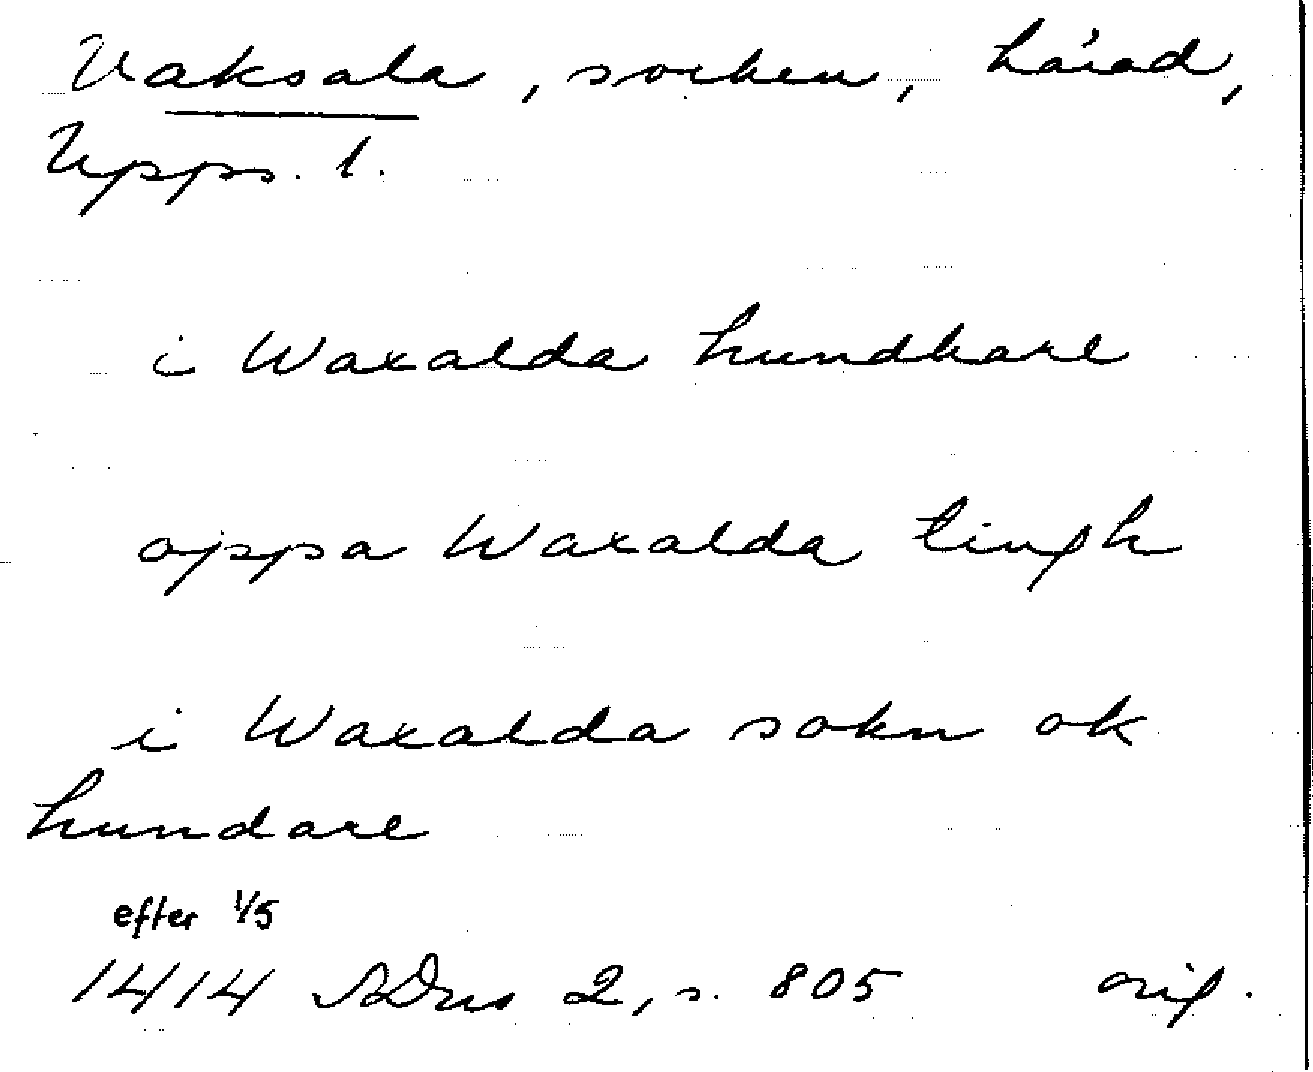 Vaksala, socken, härad,
Upps. l.
i Waxalda hundhare
oppa Waxalda tingh
i Waxalda sokn ok
hundare
efter 1/5
1414 SDns 2, s. 805 orig.